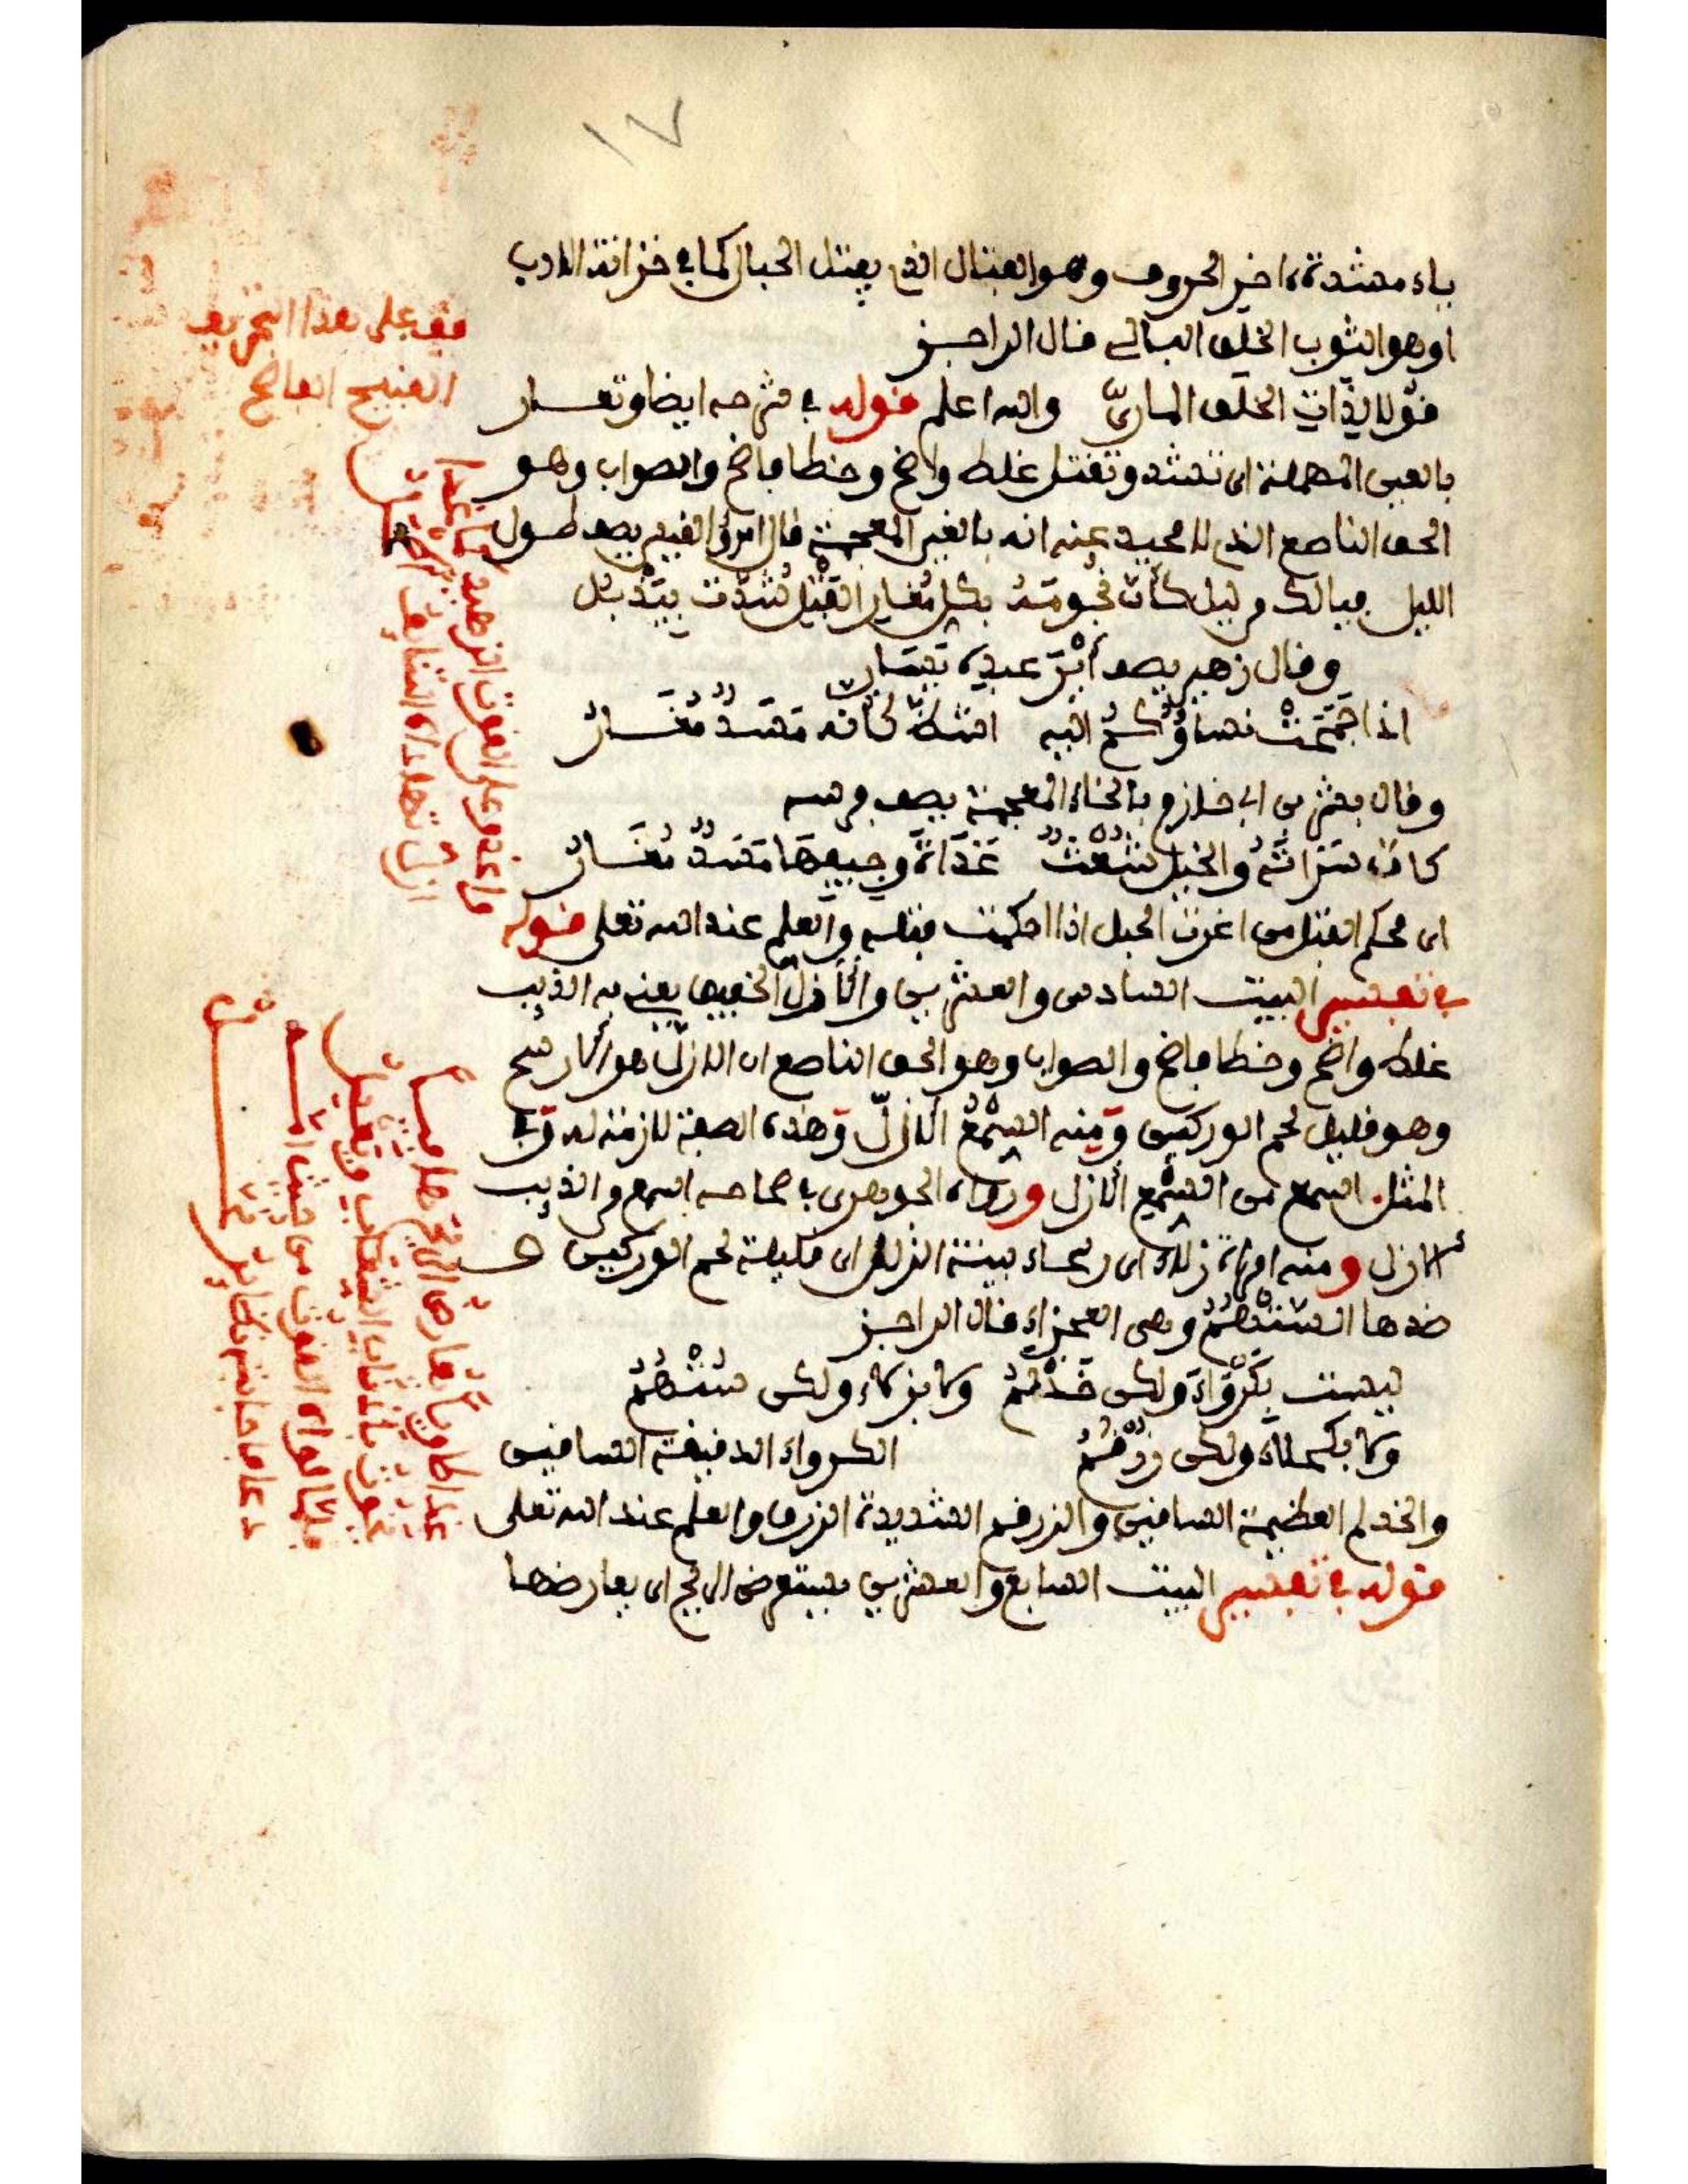 ١٧
ياء مشددة ءاخر الحروف وهو الفتال الذي يفتل الحبال كما في خزانة الادب
اوهو الثوب الخلق البالي قال الراجز
قولا لذات الخلق الماريّ والله اعلم قوله في شرحه ايضا وتعــار
بالعين المهملة اي تشد وتفتل غلط واضح وخطا فاضح والصواب وهو
الحق الناصع الذي لا محيد عنه انه بالغين المعجمة قال امرؤ القيس يصف طول
الليل فيالك من ليل كأن نجومه بكل مغار الفتل شدت بيذبل
وقال زهير يصف أير عبده يسار
اذا جمحت نساؤكم اليه اشظ كأنه مسد مغــار
وقال بشر بن ابي خازم بالخاء المعجمة يصف فرسه
كأن سراته والخيل شعث غداة وجيفها مسد مغــار
اي محكم الفتل من اغرت الحبل اذا احكمت فتله والعلم عند الله تعلى قوله
في تفسير البيت السادس والعشرين والأزل الخفيف يعني به الذيب
غلط واضح وخطا فاضح والصواب وهو الحق الناصع ان الازل هو الارسح
وهو قليل لحم الوركين ومنه السمع الازل وهذه الصفة لازمة له وفي
المثل اسمع من السمع الازل ورواه الجوهري في صحاحه اسمع من الذيب
الازل ومنه امراة زلاء اي رسحاء بينة الزلل اي قليلة لحم الوركين
ضدها الستهم وهي العجزاء قال الراجز
ليست بكرواء ولكن خدلم ولا بزلاء ولكن ستهم
ولا بكحلاء ولكن زرقم الكرواء الدقيقة الساقين
والخدلم العظيمة الساقين والزرقم الشديدة الزرق والعلم عند الله تعلى
قوله في تفسير البيت السابع والعشرين فيعترض الريح اي يعارضها
قف على هذا التحريف
القبيح الفاضح
واغدو على القوت الزهيد كما غدا
ازل تهاداه التنايف اطحل
غدا طاويا يعارض الريح هافيا
يخوت باذناب الشعاب ويعسل
فلما لواه القوت من حيث امه
دعا فاجابته نظاير نحل